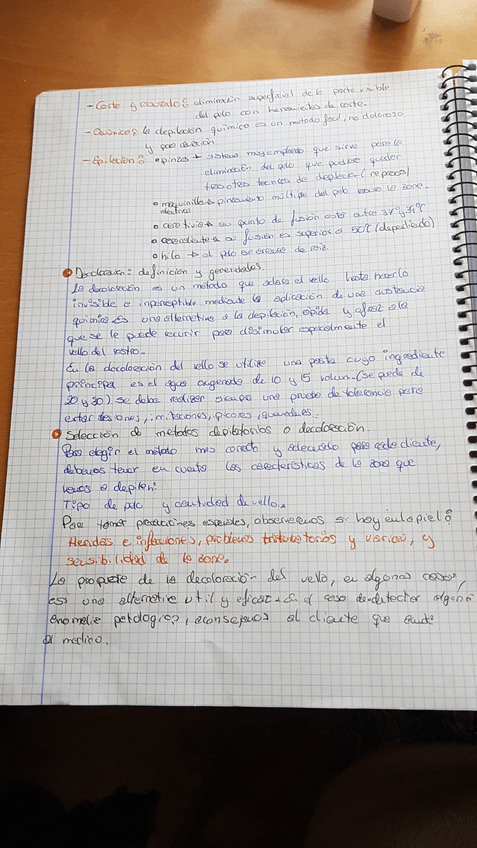 - Corte y rasurado: eliminación superficial de la parte visible
del pelo con herramientas de corte.
- Química: la depilación química es un método facil, no doloroso
y poco duración.
- Epilación: • pinzas → sistema muy empleado que sirve para la
eliminación del pelo que pudiese quedar
tras otras tecnicas de depilación (repasos)
• maquinilla → pinzamiento múltiple del pelo sobre la zona.
eléctrica
• cera tivia → su punto de fusión está entre 37º y 39ºC
• cera caliente → su fusión es superior a 50ºC (depende)
• hilo → el pelo se extrae de raiz.
• Decoloración: definición y generalidades.
La decoloración es un método que aclara el vello hasta hacerlo
invisible e inperceptible mediante la aplicación de una sustancia
química. Es una alternativa a la depilación, rápida y eficaz a la
que se le puede recurrir para disimular especialmente el
vello del rostro.
En la decoloración del vello se utiliza una pasta cuyo ingrediente
principal es el agua oxigenada de 10 y 15 volum. (se puede de
20 y 30) se debe realizar siempre una prueba de tolerancia para
evitar lesiones, irritaciones, picores, quemaduras.
• Selección de métodos depilatorios o decoloración.
Para elegir el método mas correcto y adecuado para cada cliente,
debemos tener en cuenta las características de la zona que
vamos a depilar:
Tipo de pelo y cantidad de vello.
Para tomar precauciones especiales, observaremos si hay en la piel:
Heridas e inflaciones, problemas circulatorios y varices, y
sensibilidad de la zona.
La propuesta de la decoloración del vello, en algunos casos,
es una alternativa util y eficaz. En el caso de detectar alguna
anomalía patologica, aconsejamos al cliente que acuda
al medico.